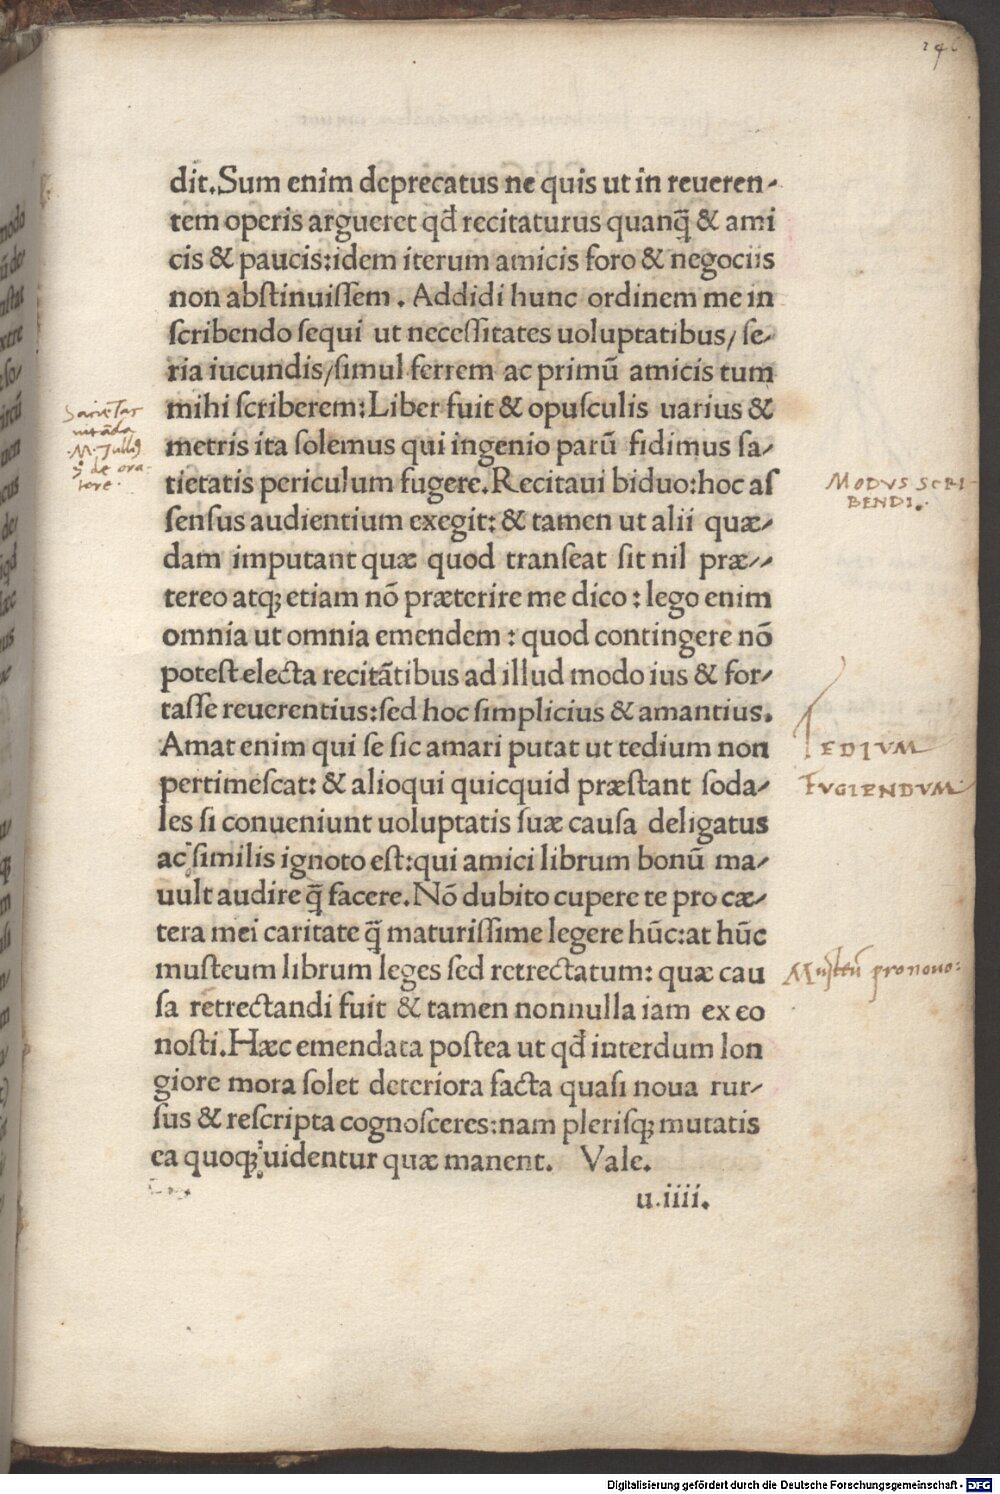 146
dit. Sum enim deprecatus ne quis ut in reueren-
tem operis argueret qđ recitaturus quanq̃ & ami
cis & paucis: idem iterum amicis foro & negociis
non abstinuissem. Addidi hunc ordinem me in
scribendo sequi ut necessitates uoluptatibus/ se-
ria iucundis/ simul ferrem ac primũ amicis tum
mihi scriberem: Liber fuit & opusculis uarius &
metris ita solemus qui ingenio parũ fidimus sa-
tietatis periculum fugere. Recitaui biduo: hoc as
sensus audientium exegit: & tamen ut alii quæ-
dam imputant quæ quod transeat sit nil præ-
tereo atqꝫ etiam nõ præterire me dico: lego enim
omnia ut omnia emendem: quod contingere nõ
potest electa recitãtibus ad illud modo ius & for-
tasse reuerentius: sed hoc simplicius & amantius.
Amat enim qui se sic amari putat ut tedium non
pertimescat: & alioqui quicquid præstant soda-
les si conueniunt uoluptatis suæ causa deligatus
ac similis ignoto est: qui amici librum bonũ ma-
uult audire q̃ facere. Nõ dubito cupere te pro cæ-
tera mei caritate q̃ maturissime legere hũc: at hũc
musteum librum leges sed retrectatum: quæ cau
sa retrectandi fuit & tamen nonnulla iam ex eo
nosti. Hæc emendata postea ut qđ interdum lon
giore mora solet deteriora facta quasi noua rur-
sus & rescripta cognosceres: nam plerisqꝫ mutatis
ea quoqꝫ uidentur quæ manent. Vale.
u.iiii.
Sacietas
uitãda
.M. Tulliꝰ
3 de ora-
tore.
MODVS SCRI-
BENDI.
TEDIVM
FVGIENDVM
Musteũ pro nouo:
Digitalisierung gefördert durch die Deutsche Forschungsgemeinschaft - DFG